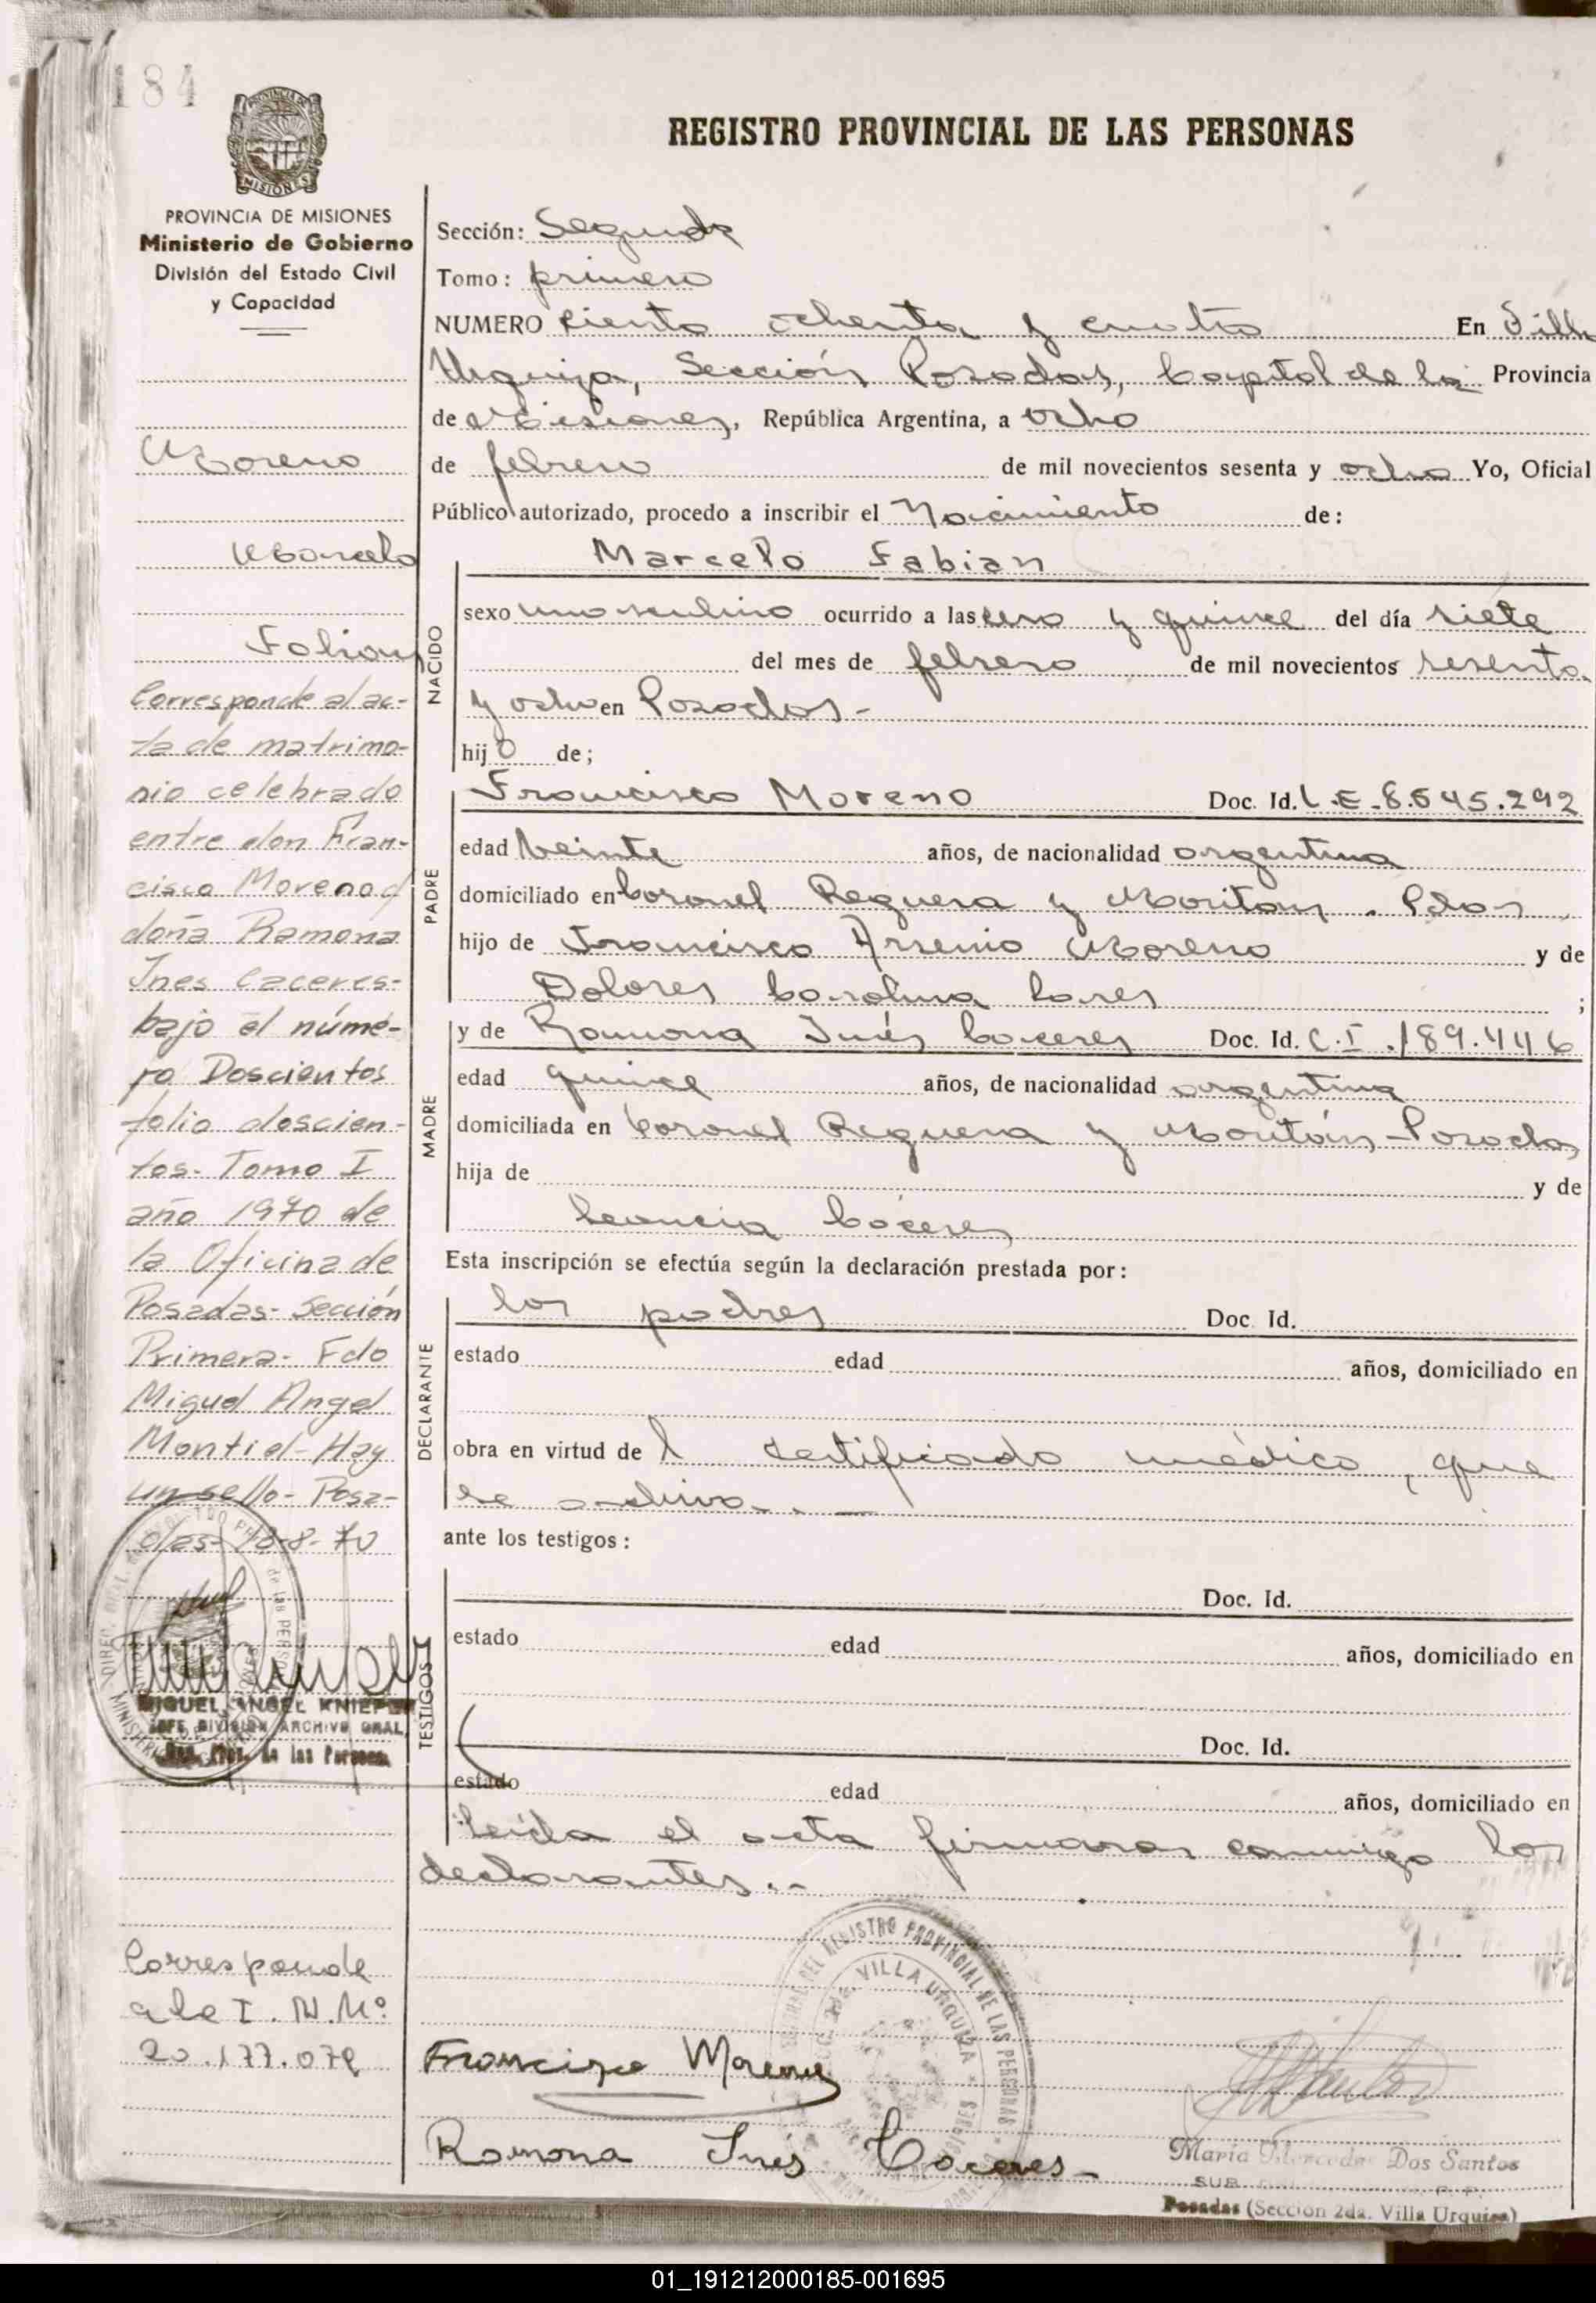 184
PROVINCIA DE
MISIONES
PROVINCIA DE MISIONES
Ministerio de Gobierno
División del Estado Civil
y Capacidad
REGISTRO PROVINCIAL DE LAS PERSONAS
Sección: Segunda
Tomo: primero
NUMERO ciento ochenta y cuatro En Villa
Urquiza, Sección Posadas, Capital de la Provincia
de Misiones, República Argentina, a ocho
de febrero de mil novecientos sesenta y ocho Yo, Oficial
Público autorizado, procedo a inscribir el Nacimiento de:
Marcelo Fabian
NACIDO
sexo masculino ocurrido a las cero y quince del día siete
del mes de febrero de mil novecientos sesenta
y ocho en Posadas.-
hijo de;
PADRE
Francisco Moreno Doc. Id. L.E. 8.545.292
edad veinte años, de nacionalidad argentina
domiciliado en Coronel Reguera y Moritan. Pdas.
hijo de Francisco Arsenio Moreno y de
Dolores Carolina ;
MADRE
y de Ramona Inés Caceres Doc. Id. C.I. 189.446
edad quince años, de nacionalidad argentina
domiciliada en Coronel Reguera y Moritán-Posadas
hija de y de
Leoncia Cáceres
Esta inscripción se efectúa según la declaración prestada por:
DECLARANTE
los padres Doc. Id.
estado edad años, domiciliado en
obra en virtud del certificado médico, que
se archiva.-
ante los testigos:
TESTIGOS
Doc. Id.
estado edad años, domiciliado en
Doc. Id.
estado edad años, domiciliado en
Leída el acta firmaron conmigo los
declarantes.-
Francisco Moreno
Ramona Inés Caceres-
DEL REGISTRO PROVINCIAL DE LAS PERSONAS
VILLA URQUIZA
María Mercedes Dos Santos
SUB
Posadas (Sección 2da. Villa Urquiza)
Moreno
Marcelo
Fabian
Corresponde al ac-
ta de matrimo-
nio celebrado
entre don Fran-
cisco Moreno y
doña Ramona
Ines Caceres-
bajo el núme-
ro Doscientos
folio doscien-
tos- Tomo I
año 1970 de
la Oficina de
Posadas- Sección
Primera- Fdo
Miguel Angel
Montiel- Hay
un sello- Posa-
das- 18-8-70
MIGUEL ANGEL KNIEP
JEFE DIVISION ARCHIVO GRAL.
de las Personas
Corresponde
a la I. N. Nº
20.177.079
01_191212000185-001695